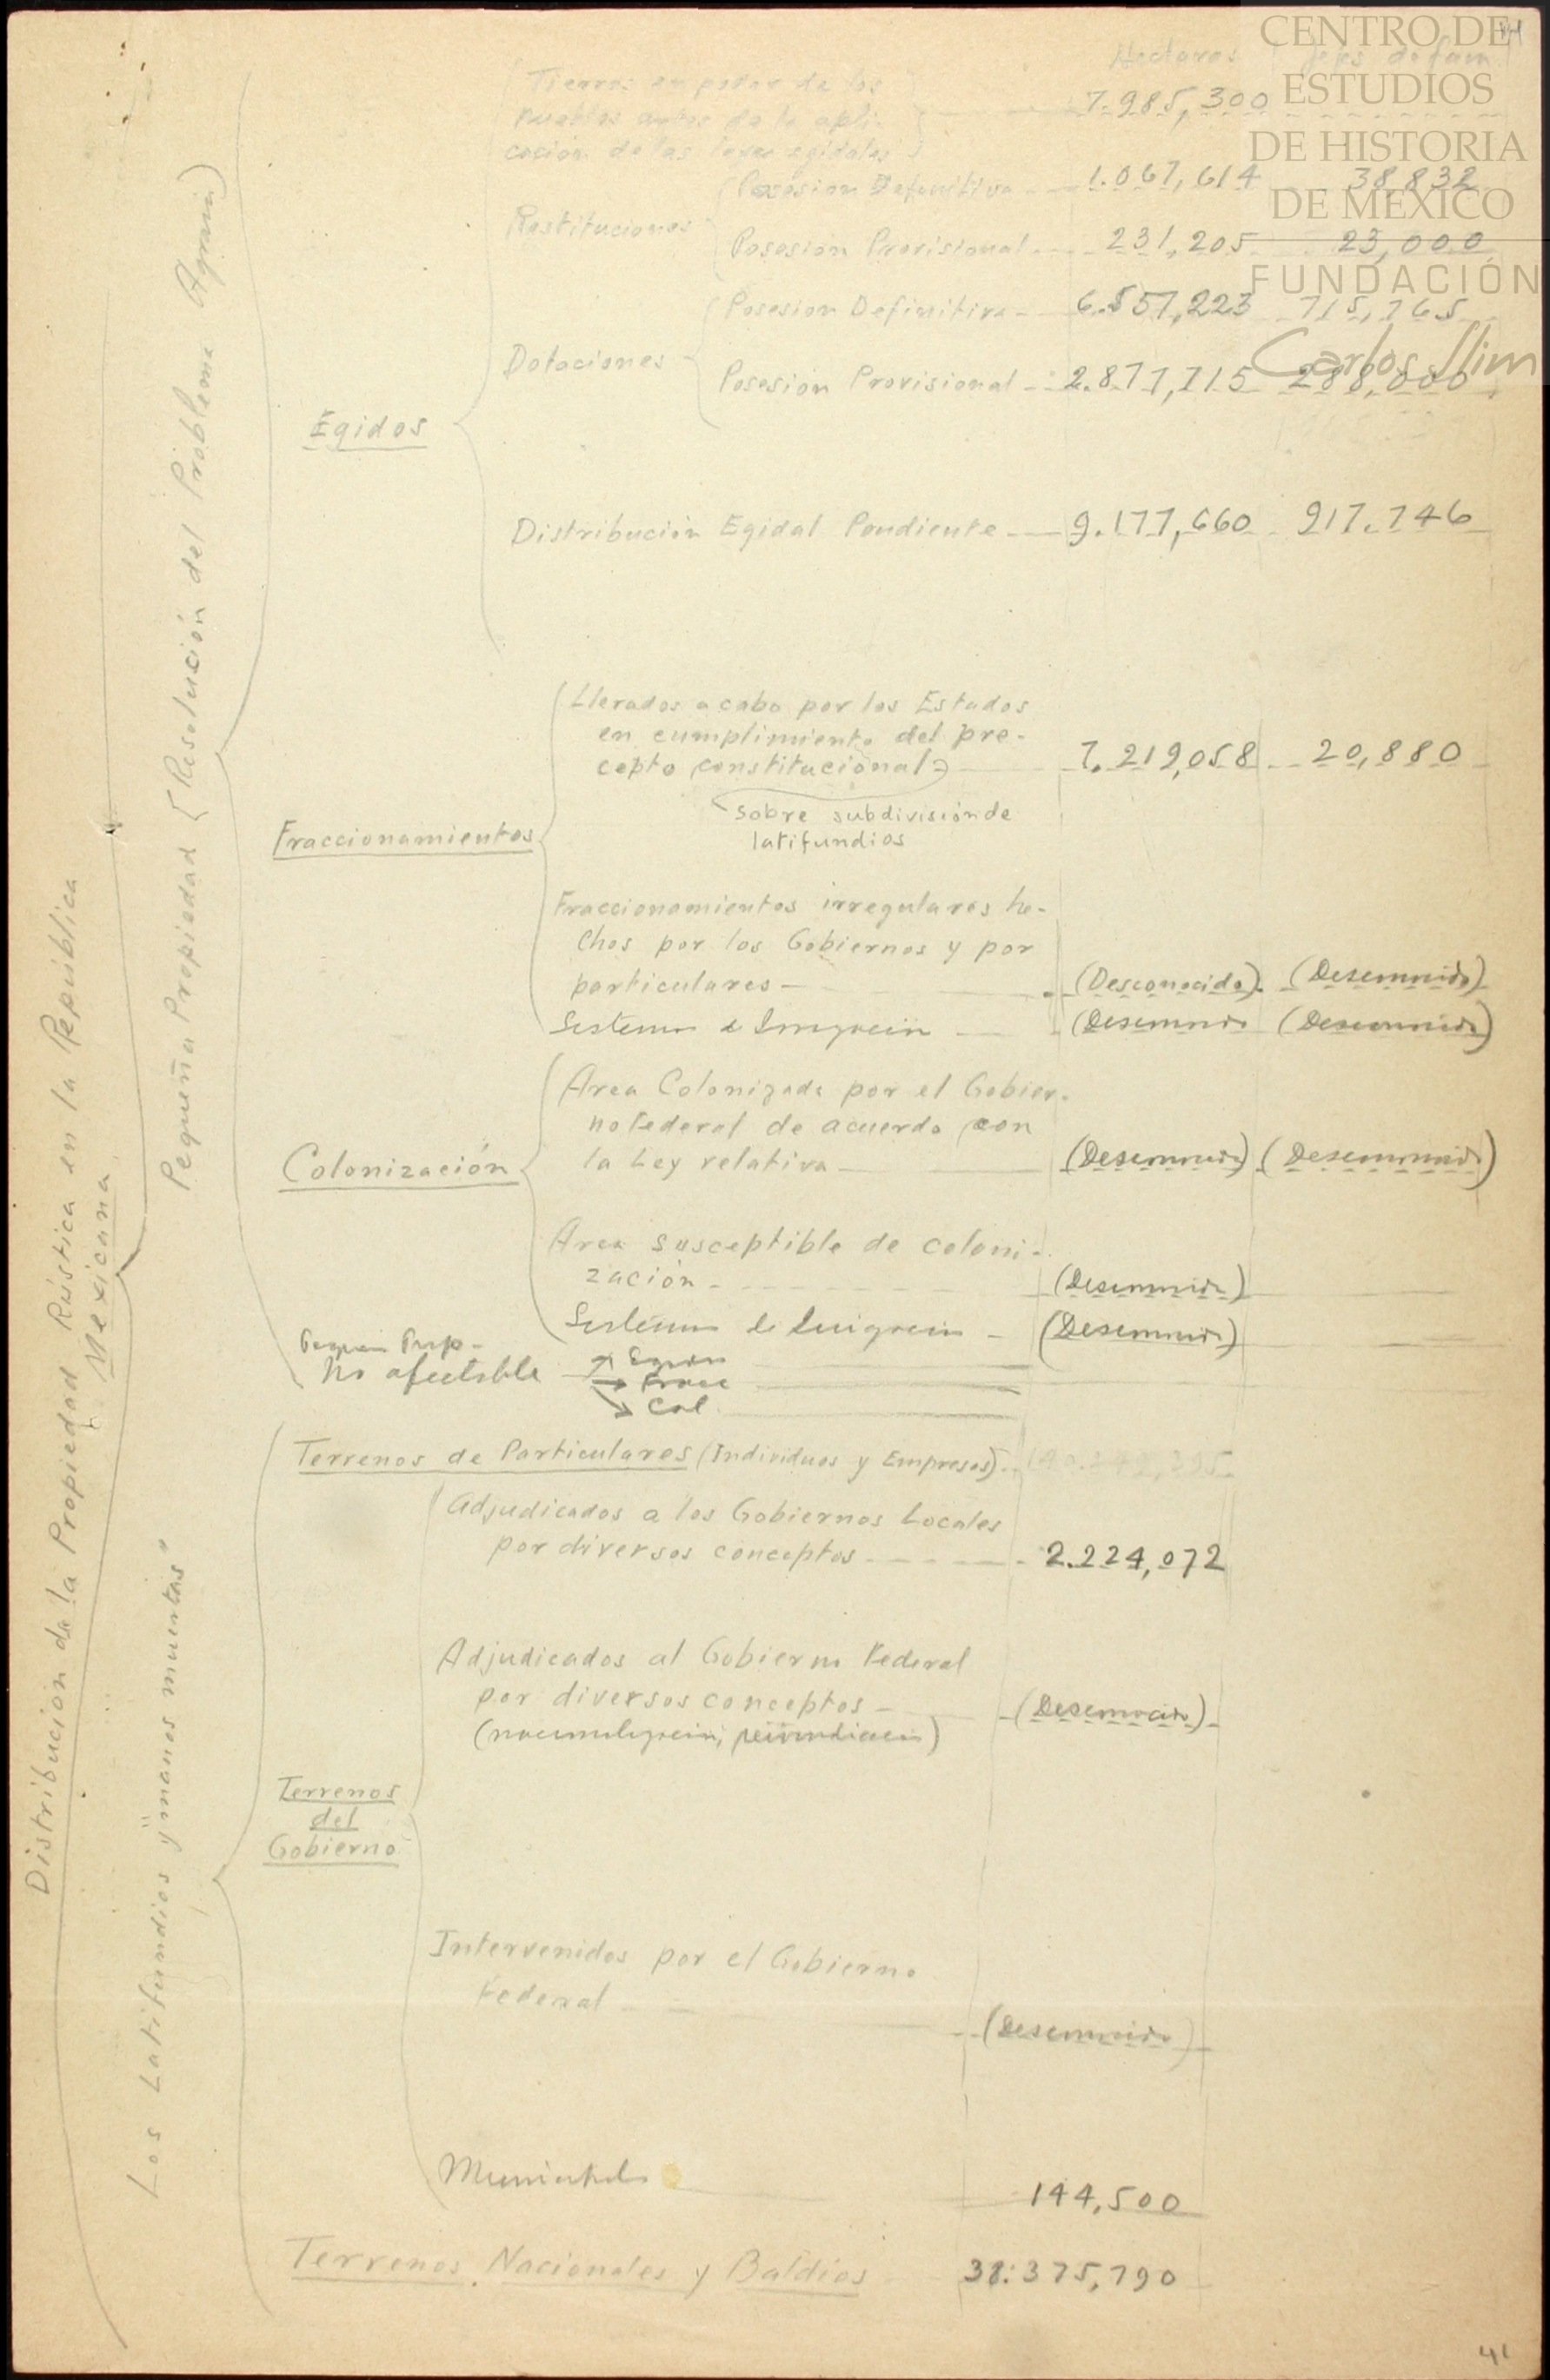 CENTRO DE
ESTUDIOS
DE HISTORIA
DE MÉXICO
FUNDACIÓN
Carlos Slim
Hectaras Jefes de fam
Distribución de la Propiedad Rústica en la República
Mexicana
Pequeña Propiedad (Resolución del Problema Agrario)
Egidos
Tierras en poder de los
Pueblos antes de la apli-
cación de las leyes egidales 7.985,300
Restituciones
Posesion Definitiva 1.067,614 38,832
Posesión Provisional 231,205 23,000
Dotaciones
Posesion Definitiva 6.557,223 715,765
Posesión Provisional 2.877,715 288,000
Distribución Egidal Pendiente 9.177,660 917.746
Fraccionamientos
Llevados a cabo por los Estados
en cumplimiento del pre-
cepto constitucional 7.219,058 20,880
sobre subdivisión de
latifundios
Fraccionamientos irregulares he-
chos por los Gobiernos y por
particulares (Desconocido) (Desconocido)
Sistemas de Irrigación (Desconocido (Desconocido)
Colonización
Area Colonizada por el Gobier-
no Federal de acuerdo con
la Ley relativa (Desconocido) (Desconocido)
Area susceptible de coloni-
zación (Desconocido)
Sistemas de Irrigación (Desconocido)
Pequeña Prop-
No afectable Egidos
Fracc
Col.
Los Latifundios y "manos muertas"
Terrenos de Particulares (Individuos y Empresas)
Terrenos
del
Gobierno
Adjudicados a los Gobiernos Locales
por diversos conceptos 2.224,072
Adjudicados al Gobierno Federal
por diversos conceptos (Desconocido)
Intervenidos por el Gobierno
Federal (Desconocido)
Municipales 144,500
Terrenos Nacionales y Baldíos 38:375,790
41